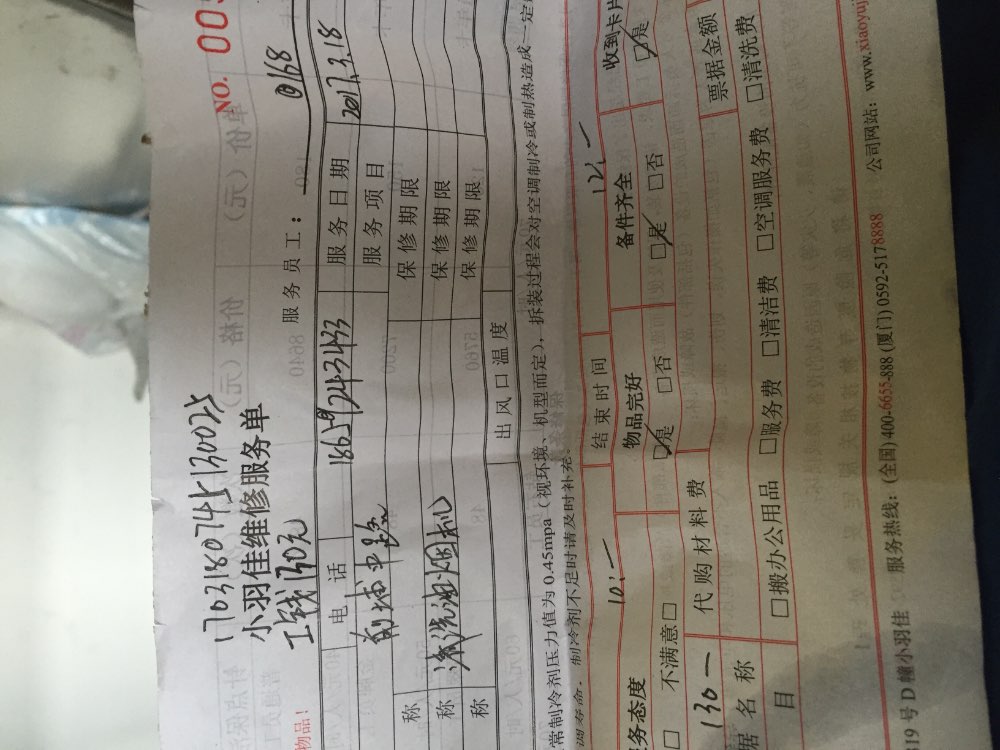 NO. 005
1703180745130025
小羽佳维修服务单
工钱130元
物品！
服务员工： 0168
电话 18659243433 服务日期 2017.3.18
服务项目
称 保修期限
称 清洗油烟机 保修期限
称 保修期限
出风口温度
常制冷剂压力值为 0.45mpa（视环境、机型而定），拆装过程会对空调制冷或制热造成一定
制冷剂不足时请及时补充。
10:— 结束时间 12:—
务态度 物品完好 备件齐全 收到卡片
□ 不满意□ □是 □否 □是 □否 □是
130— 代购材料费 票据金额
据名称 □搬办公用品 □服务费 □清洁费 □空调服务费 □清洗费
目
19号D幢小羽佳 服务热线：(全国) 400-6655-888 (厦门) 0592-5178888 公司网站：www.xiaoyuj